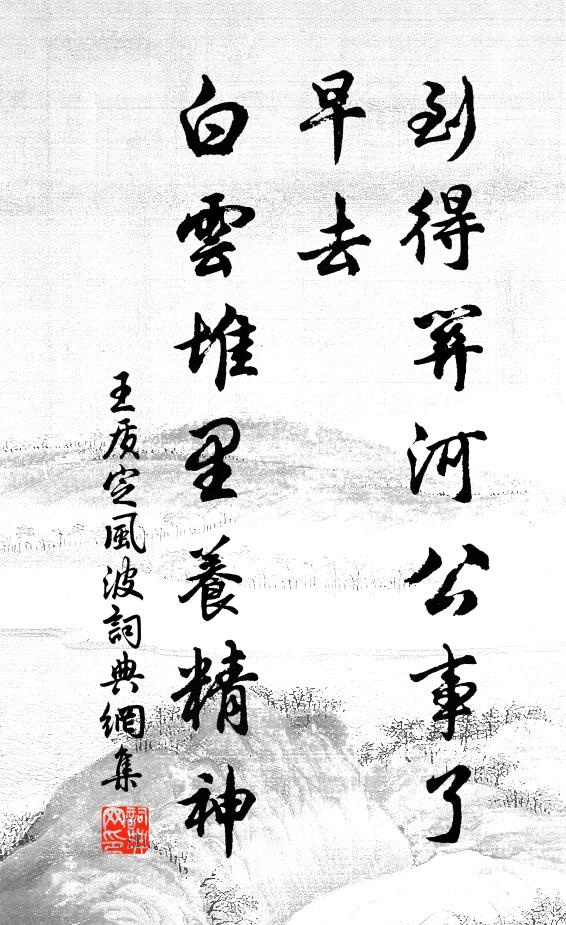 到得開河公事了
早去
白雲堆里養精神
王质定風波詞典網集
詞典网印